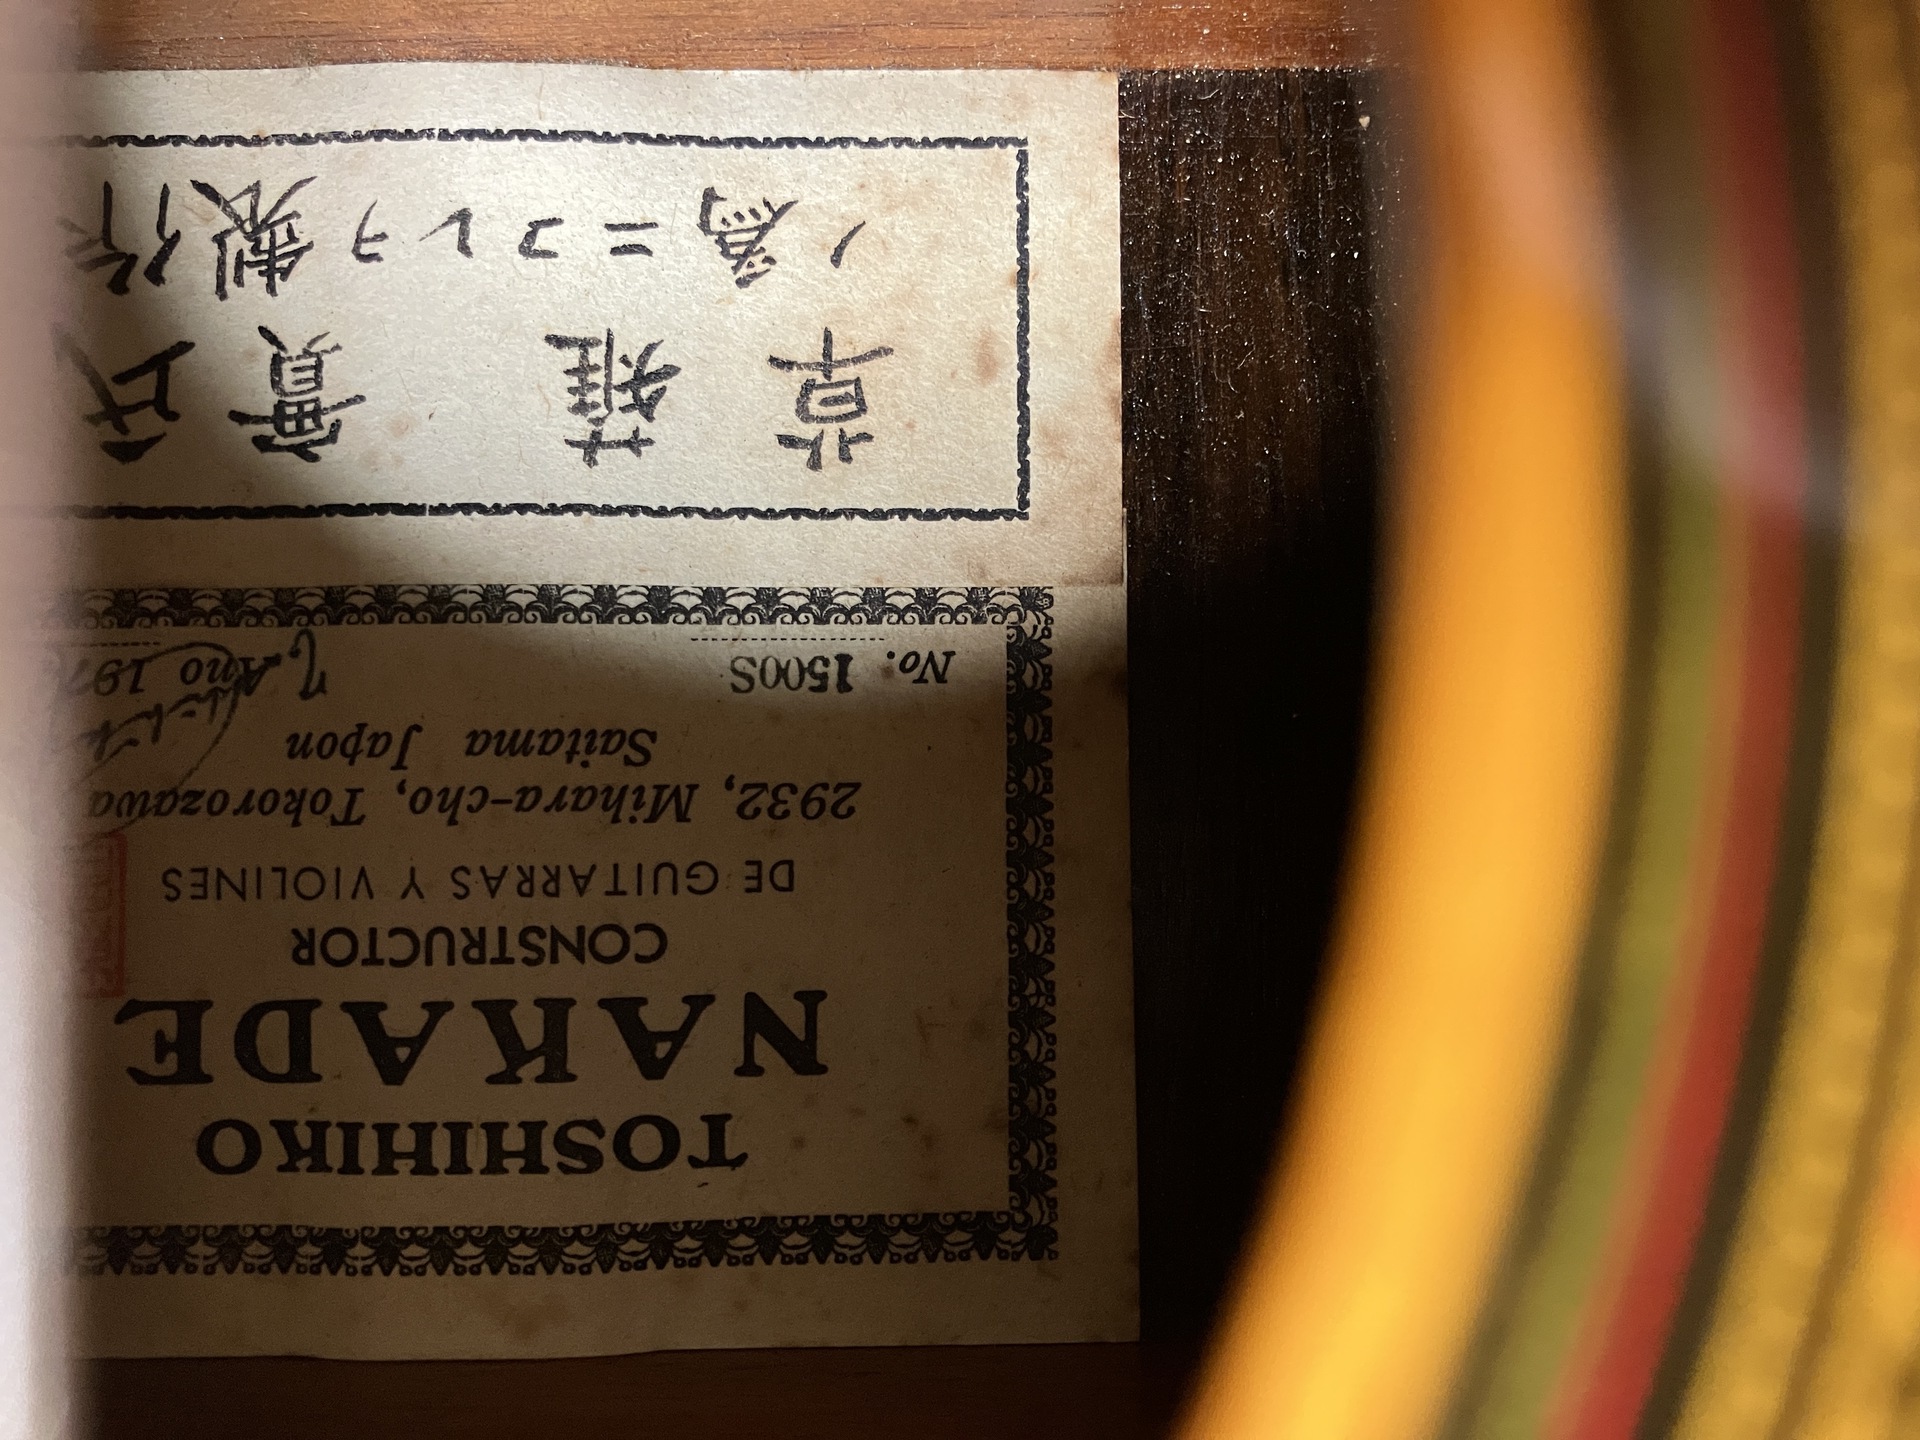 TOSHIHIKO
NAKADE
CONSTRUCTOR
DE GUITARRAS Y VIOLINES
2932, Mihara-cho, Tokorozawa
Saitama Japon
No. 1500S Ano
草薙 實氏
ノ爲ニコレヲ製作